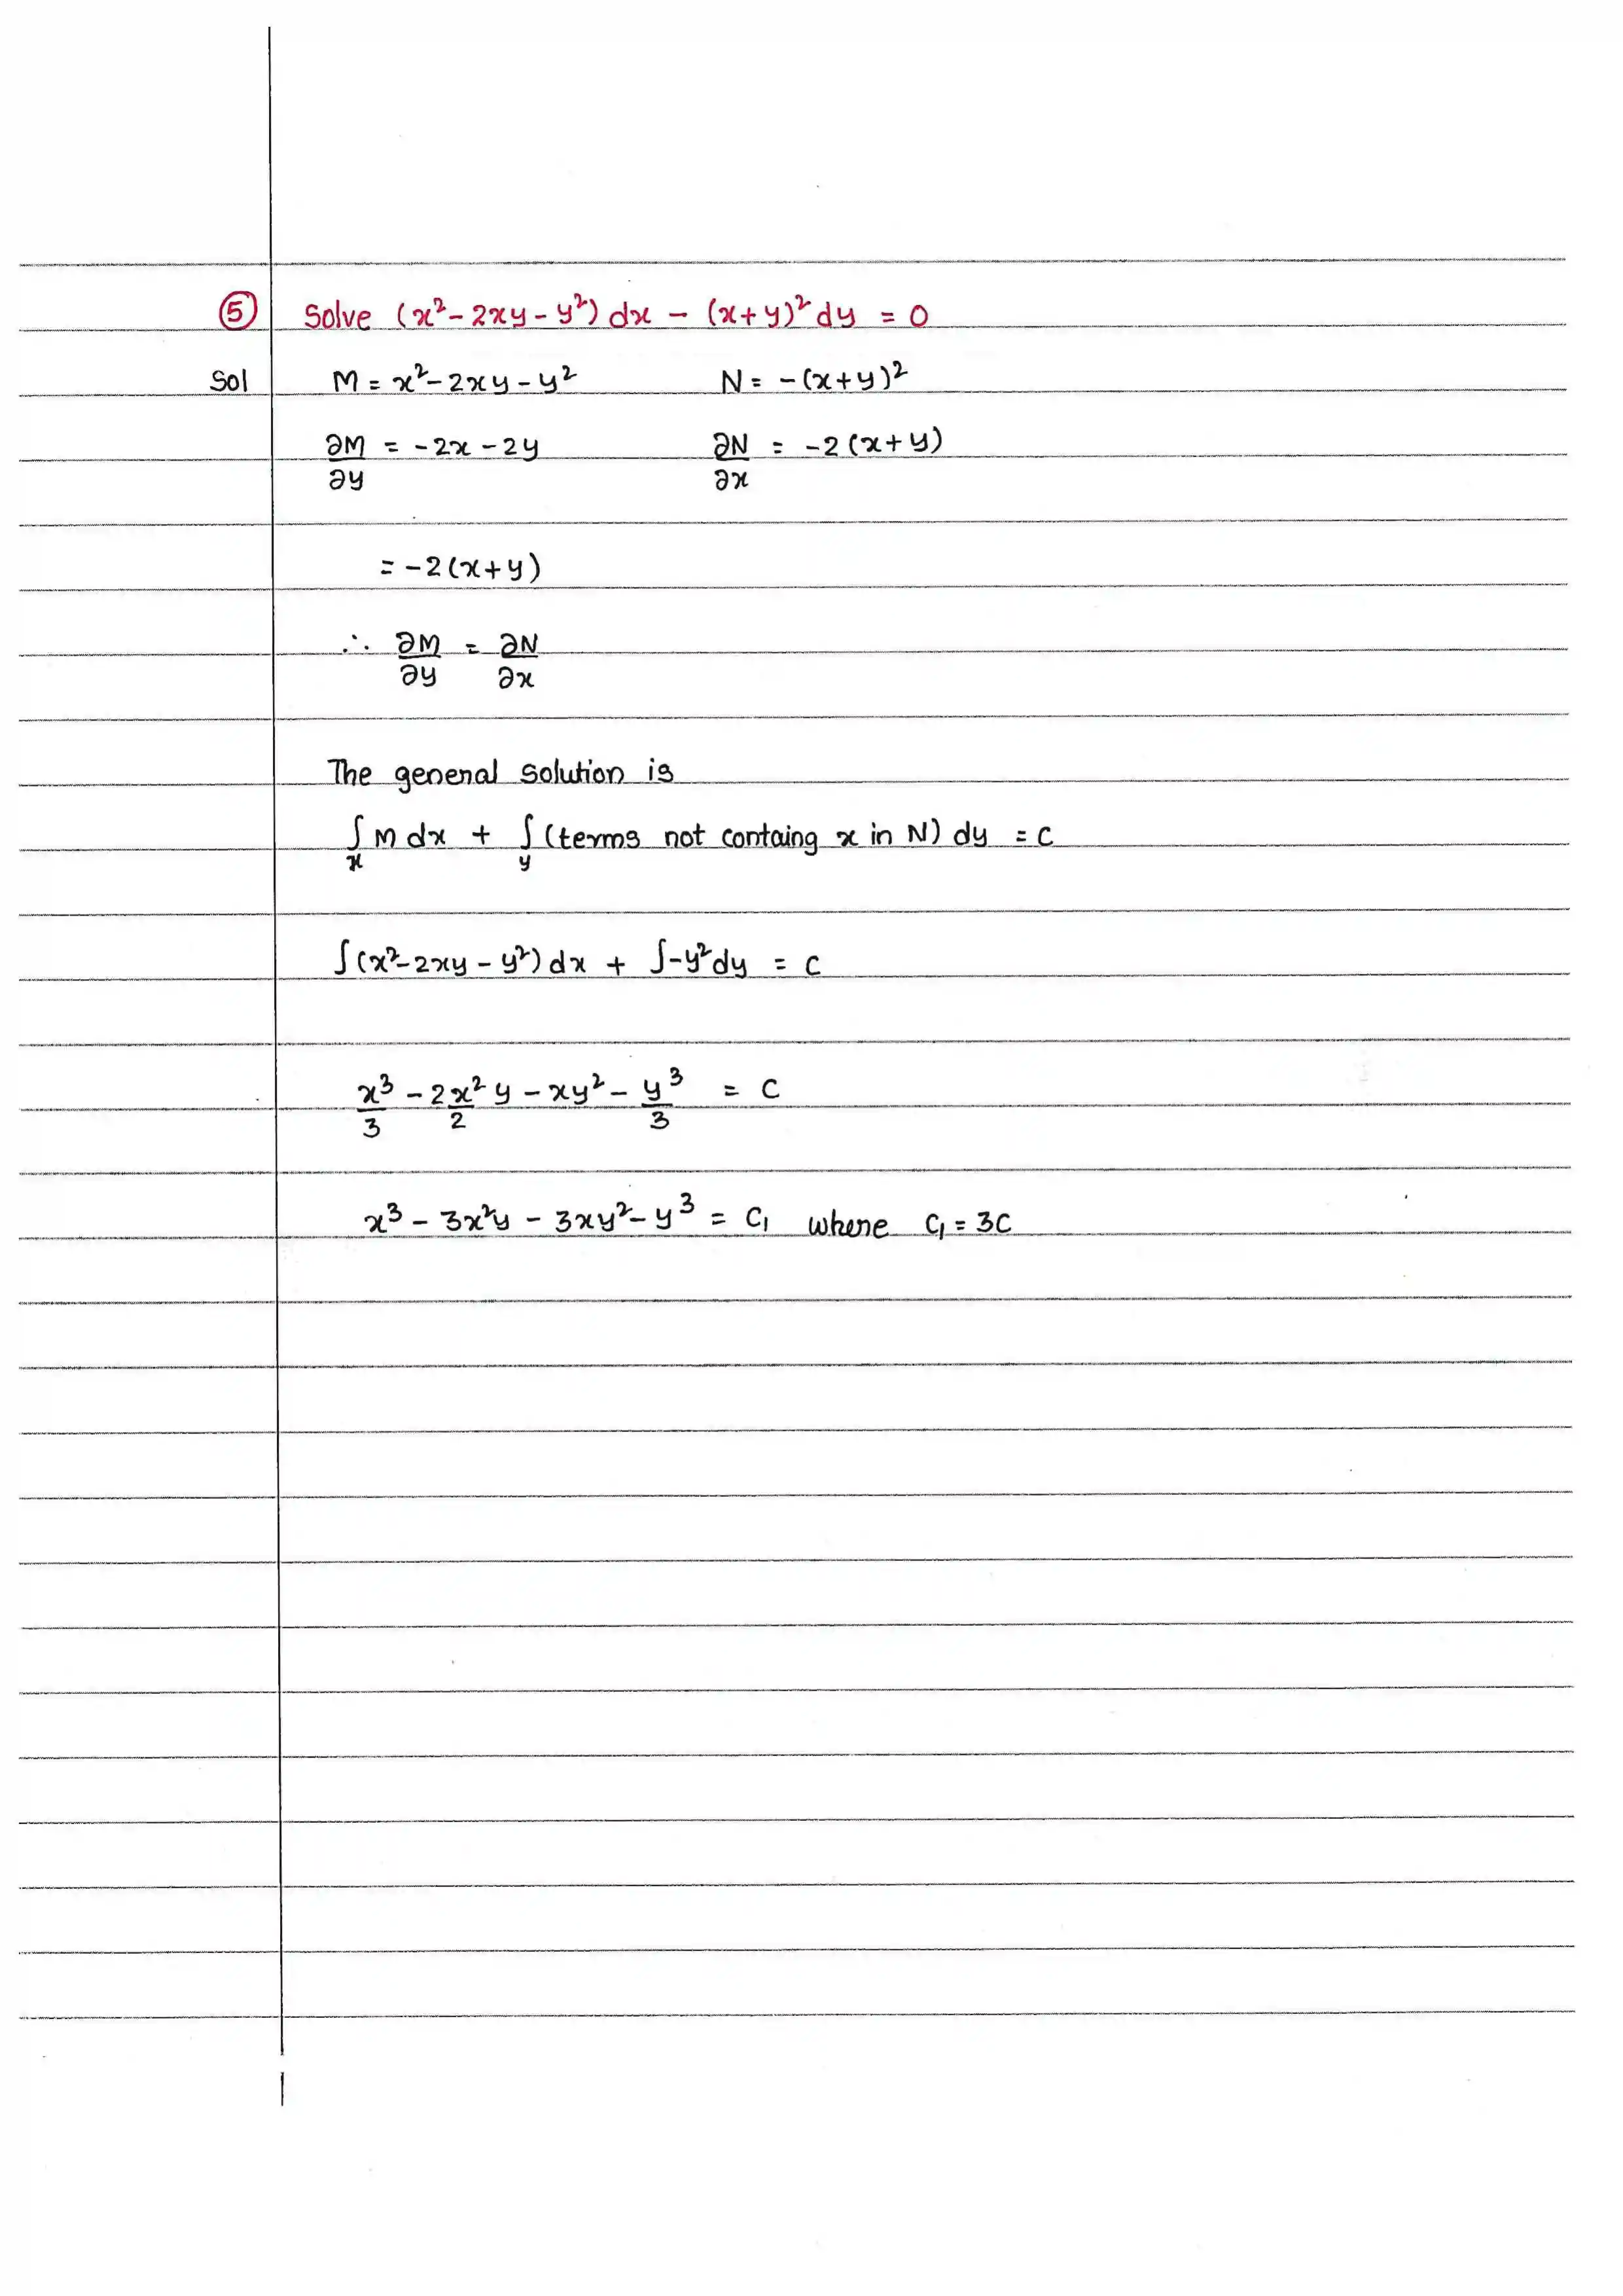 ⑤ Solve (x² - 2xy - y²) dx - (x+y)² dy = 0
Sol M = x² - 2xy - y² N = -(x+y)²
∂M/∂y = -2x - 2y ∂N/∂x = -2(x+y)
= -2(x+y)
∴ ∂M/∂y = ∂N/∂x
The general solution is
∫x M dx + ∫y (terms not containg x in N) dy = c
∫(x² - 2xy - y²) dx + ∫-y² dy = c
x³/3 - 2x²/2 y - xy² - y³/3 = c
x³ - 3x²y - 3xy² - y³ = c₁ where c₁ = 3c